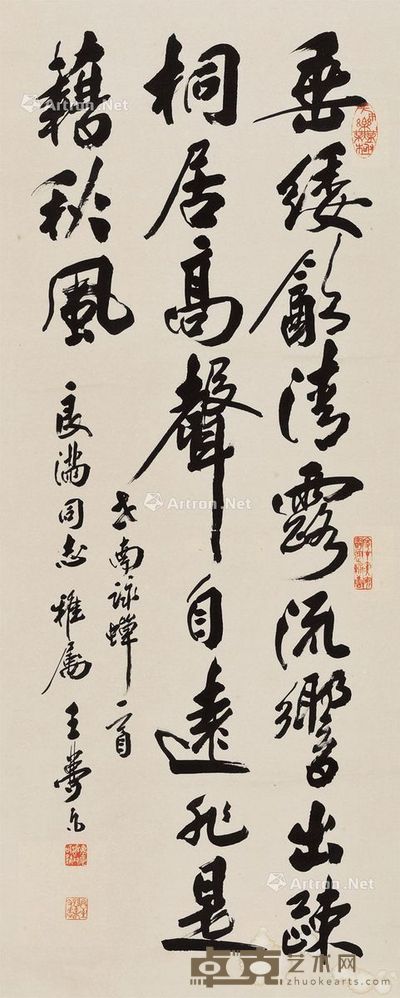 垂緌飲清露流響出疎
桐居高聲自遠非是
藉秋風
世南詠蟬一首
良滿同志雅属 王夢
Artron.Net
Artron.Net
Artron.Net
Artron.Net
卓克艺术网
www.zhuokearts.com